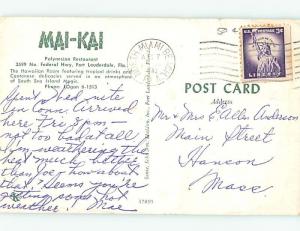 MAI-KAI
Polynesian Restaurant
3599 No. Federal Hwy. Fort Lauderdale, Fla.
The Hawaiian Room featuring tropical drinks and
Cantonese delicacies served in an atmosphere
of South Sea Island Magic.
Phone: LOgan 6-1513
MIAMI
U.S. POSTAGE
3¢
LIBERTY
POST CARD
Address
Spent Wed nite
in Corn arrived
here Fri 8 pm-
not too bad at all
I'm weathering the
heat much better
than Joe + how about
that! Seems you're
getting some hot
weather. Mae
Mr & Mrs C Allen Anderson
Main Street
Hanson
Mass